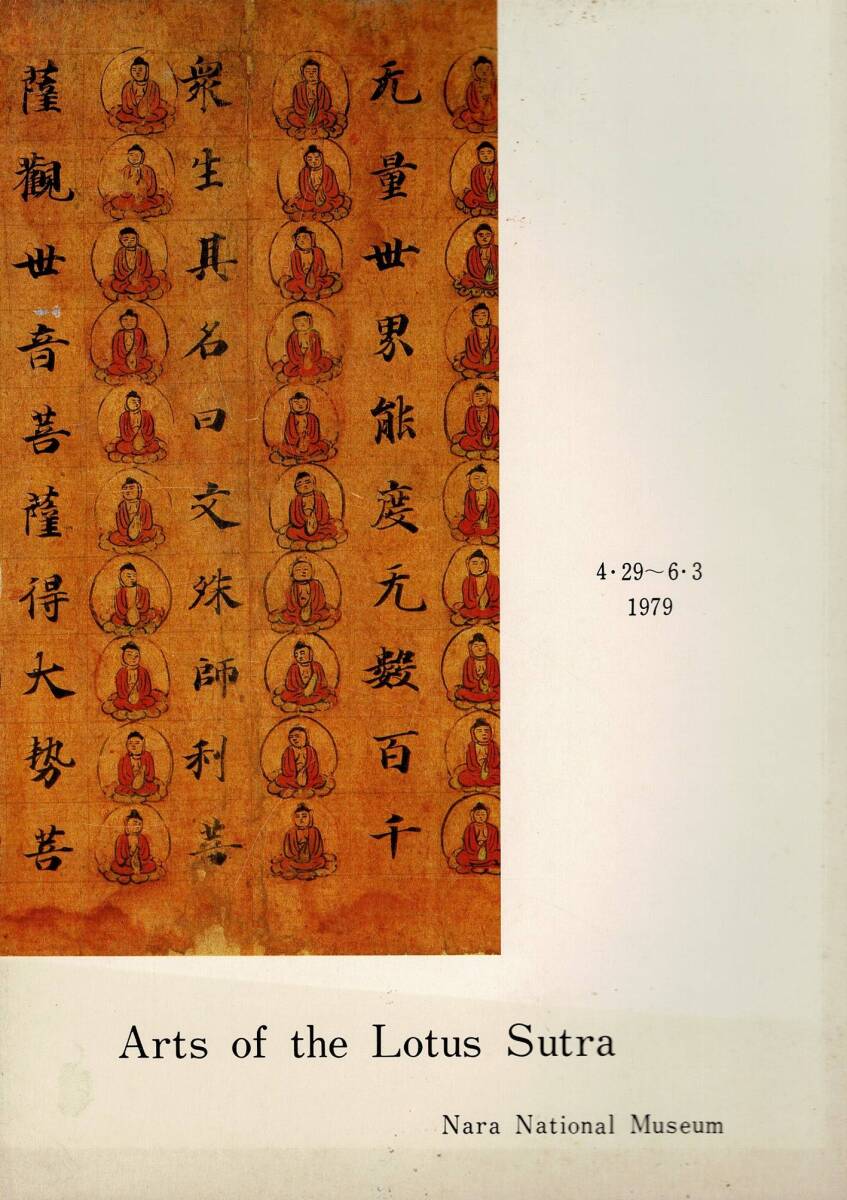 无量世界能度无數百千
衆生其名曰文殊師利菩
薩觀世音菩薩得大势菩
4・29～6・3
1979
Arts of the Lotus Sutra
Nara National Museum